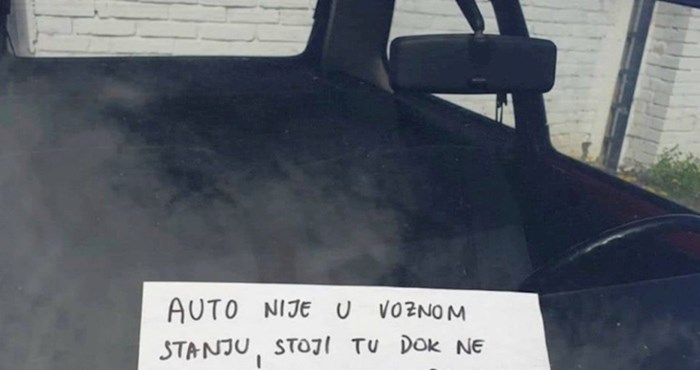 AUTO NIJE U VOZNOM
STANJU, STOJI TU DOK NE